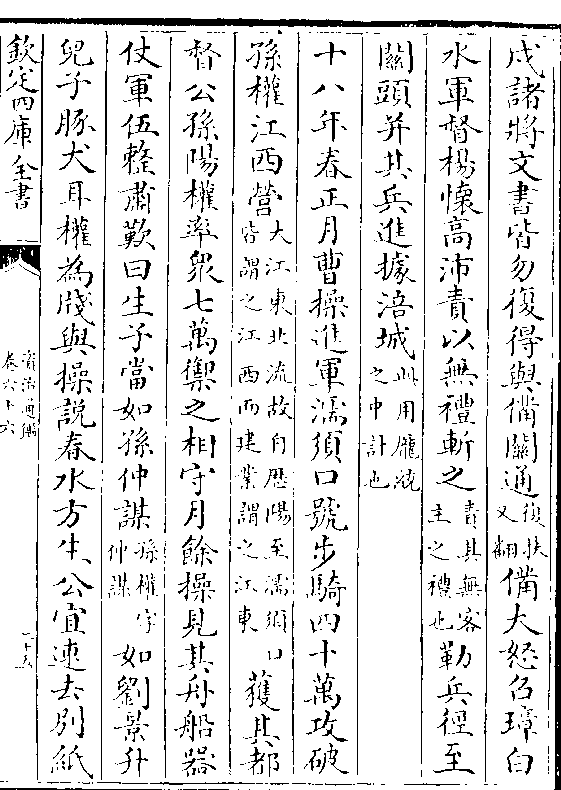 戍諸將文書皆勿復得與備關通復扶又翻備大怒召璋白
水軍督楊懷高沛責以無禮斬之責其無客主之禮也勒兵徑至
關頭并其兵進據涪城此用龐統之中計也
十八年春正月曹操進軍濡須口號步騎四十萬攻破
孫權江西營大江東北流故自歷陽至濡須口皆謂之江西而建業謂之江東獲其都
督公孫陽權率衆七萬禦之相守月餘操見其舟船器
仗軍伍整肅歎曰生子當如孫仲謀孫權字仲謀如劉景升
兒子豚犬耳權為牋與操說春水方生公宜速去別紙
欽定四庫全書
資治通鑑
卷六十六
二十五